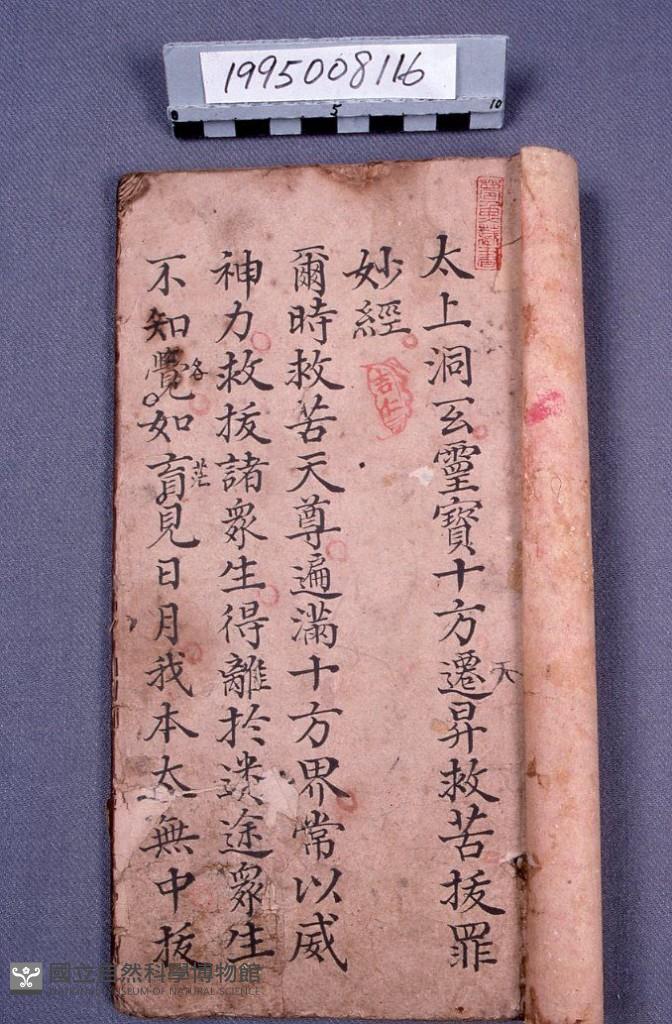 1995008116
0 5 10
太上洞玄靈寶十方遷昇救苦拔罪
天
妙經
爾時救苦天尊遍滿十方界常以威
神力救拔諸眾生得離於迷途眾生
不知覺如盲見日月我本太無中拔
各
茫
國立自然科學博物館
NATIONAL MUSEUM OF NATURAL SCIENCE